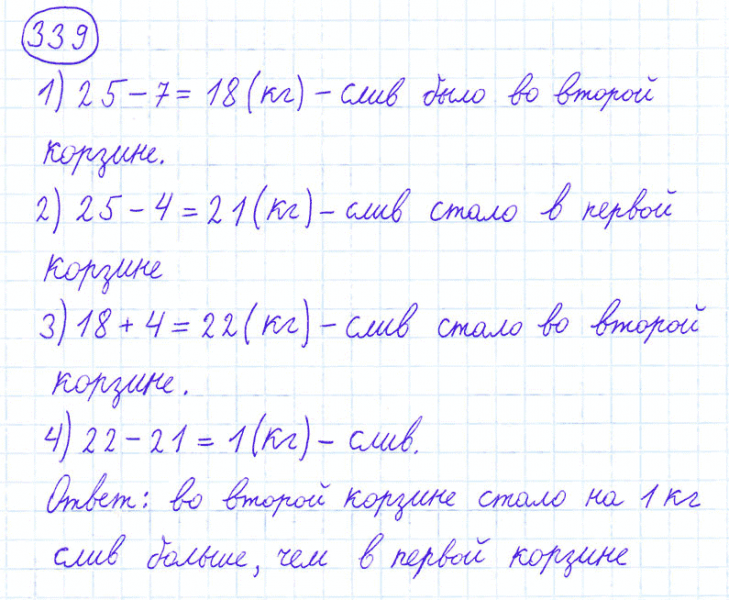 339
1) 25 - 7 = 18 (кг) - слив было во второй
корзине.
2) 25 - 4 = 21 (кг) - слив стало в первой
корзине
3) 18 + 4 = 22 (кг) - слив стало во второй
корзине.
4) 22 - 21 = 1 (кг) - слив.
Ответ: во второй корзине стало на 1 кг
слив больше, чем в первой корзине